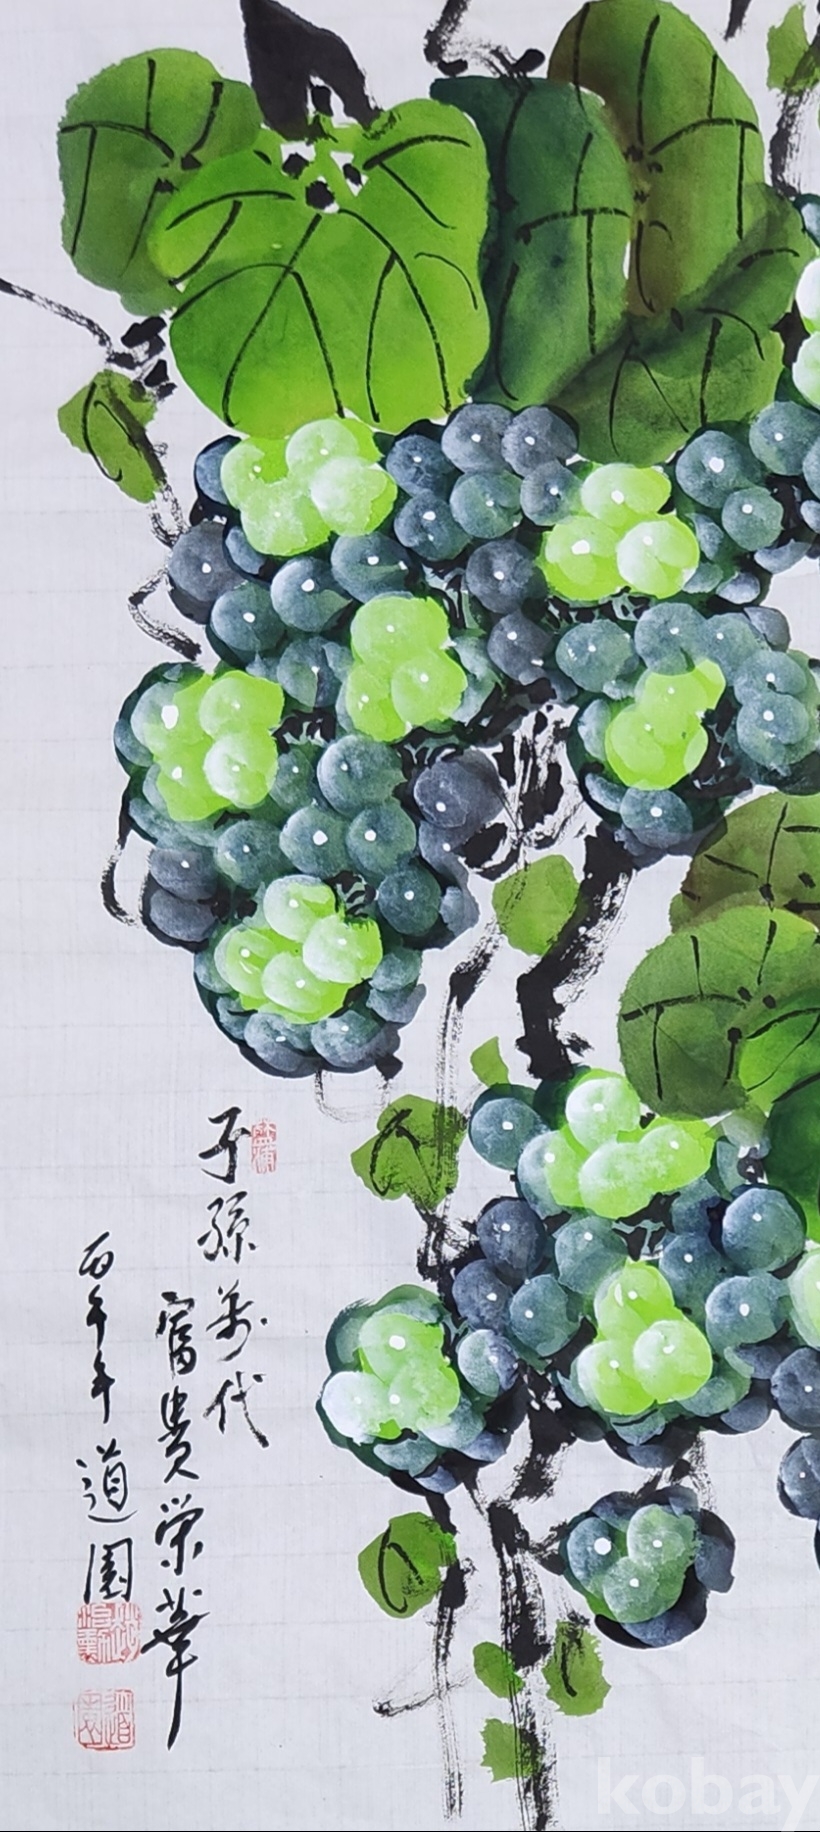 子孫萬代
富貴榮華
丙午年 道園
kobay